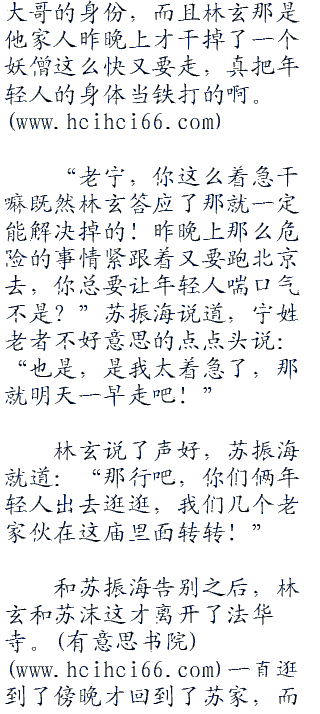 大哥的身份，而且林玄那是
他家人昨晚上才干掉了一个
妖僧这么快又要走，真把年
轻人的身体当铁打的啊。
(www.hcihci66.com)
“老宁，你这么着急干
嘛既然林玄答应了那就一定
能解决掉的！昨晚上那么危
险的事情紧跟着又要跑北京
去，你总要让年轻人喘口气
不是？”苏振海说道，宁姓
老者不好意思的点点头说：
“也是，是我太着急了，那
就明天一早走吧！”
林玄说了声好，苏振海
就道：“那行吧，你们俩年
轻人出去逛逛，我们几个老
家伙在这庙里面转转！”
和苏振海告别之后，林
玄和苏沫这才离开了法华
寺。(有意思书院)
(www.hcihci66.com)一直逛
到了傍晚才回到了苏家，而